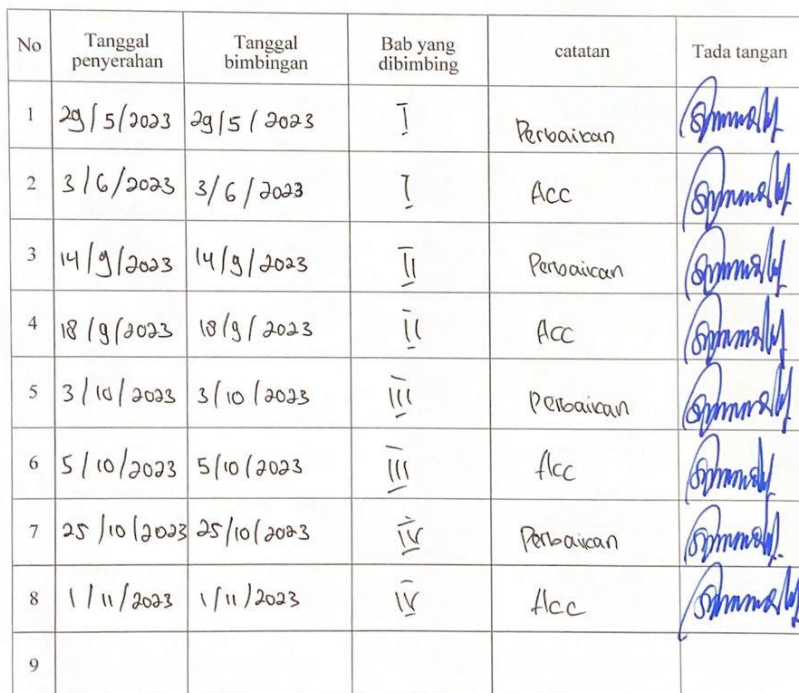 No Tanggal penyerahan Tanggal bimbingan Bab yang dibimbing catatan Tada tangan
1 29/5/2023 29/5/2023 I Perbaikan
2 3/6/2023 3/6/2023 I Acc
3 14/9/2023 14/9/2023 II Perbaikan
4 18/9/2023 18/9/2023 II Acc
5 3/10/2023 3/10/2023 III Perbaikan
6 5/10/2023 5/10/2023 III Acc
7 25/10/2023 25/10/2023 IV Perbaikan
8 1/11/2023 1/11/2023 IV Acc
9